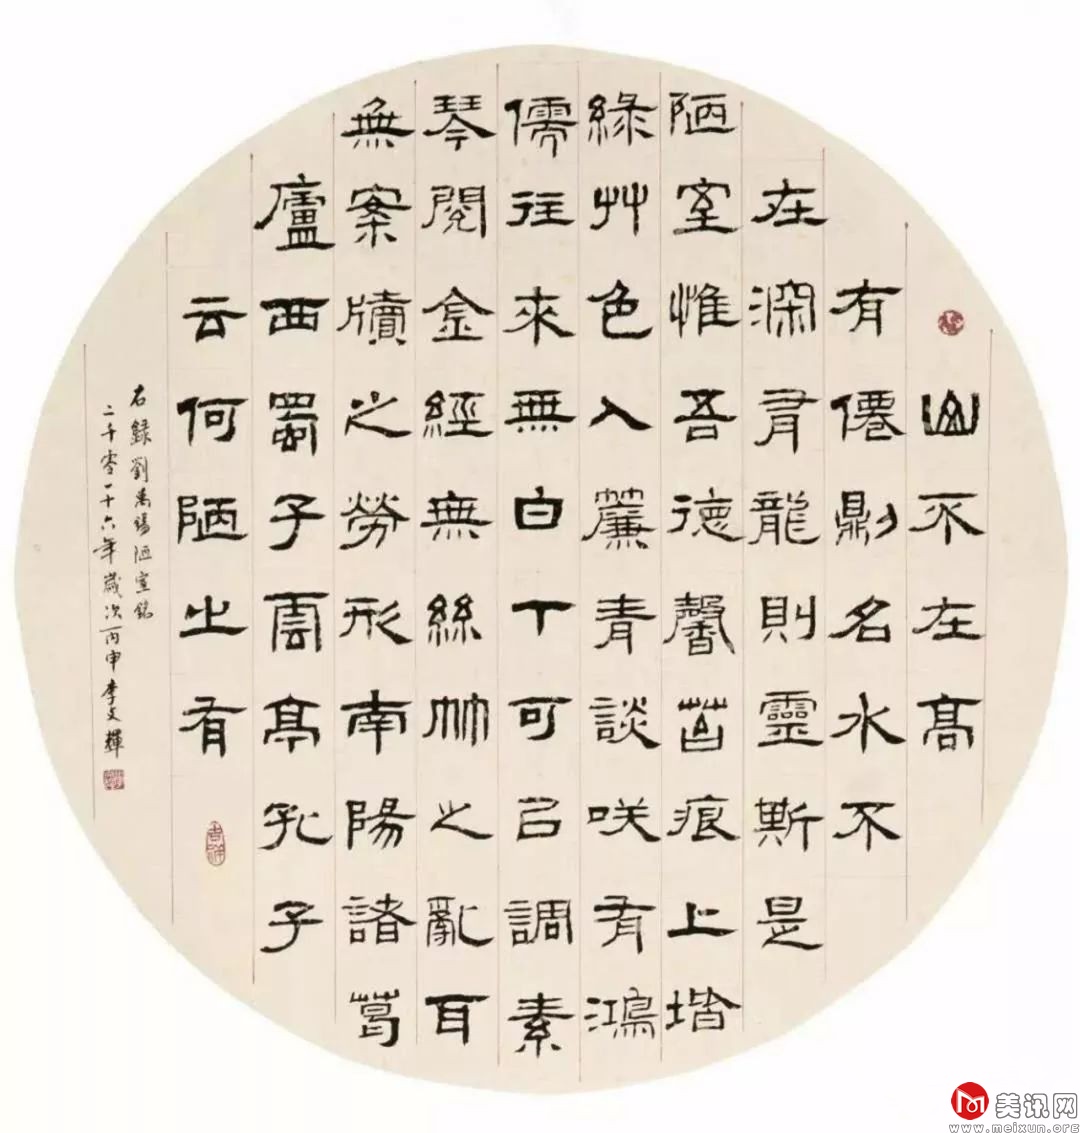 山不在高
有僊則名水不
在深有龍則靈斯是
陋室惟吾德馨苔痕上堦
綠艸色入簾青談咲有鴻
儒往來無白丁可㠯調素
琴閱金經無絲竹之亂耳
無案牘之勞形南陽諸葛
廬西蜀子雲亭孔子
云何陋之有
右錄劉禹錫陋室銘
二千零一十六年歲次丙申李文輝
美讯网
www.meixun.org